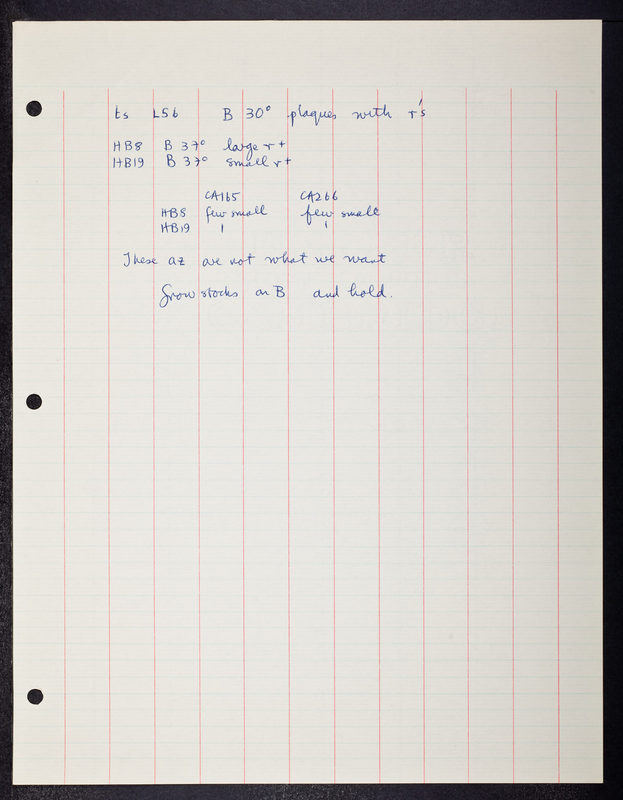 ts L56 B 30° plaques with r's
HB8 B 37° large r+
HB19 B 37° small r+
CA165 CA266
HB8 few small few small
HB19 1 1
These az are not what we want
Grow stocks on B and hold.